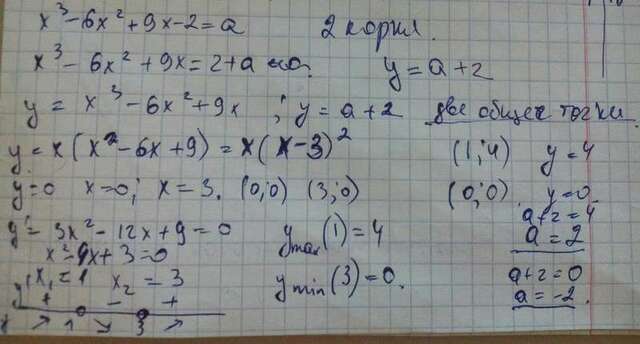 x³ - 6x² + 9x - 2 = a 2 корня.
x³ - 6x² + 9x = 2 + a y = a + 2
y = x³ - 6x² + 9x ; y = a + 2 две общие точки
y = x(x² - 6x + 9) = x(x - 3)² (1; 4) y = 4
y = 0 x = 0; x = 3. (0; 0) (3; 0) (0; 0) y = 0
a + 2 = 4
y' = 3x² - 12x + 9 = 0 y max (1) = 4 a = 2
x² - 4x + 3 = 0
x₁ = 1 x₂ = 3 y min (3) = 0. a + 2 = 0
y' + - + a = -2.
y 1 3